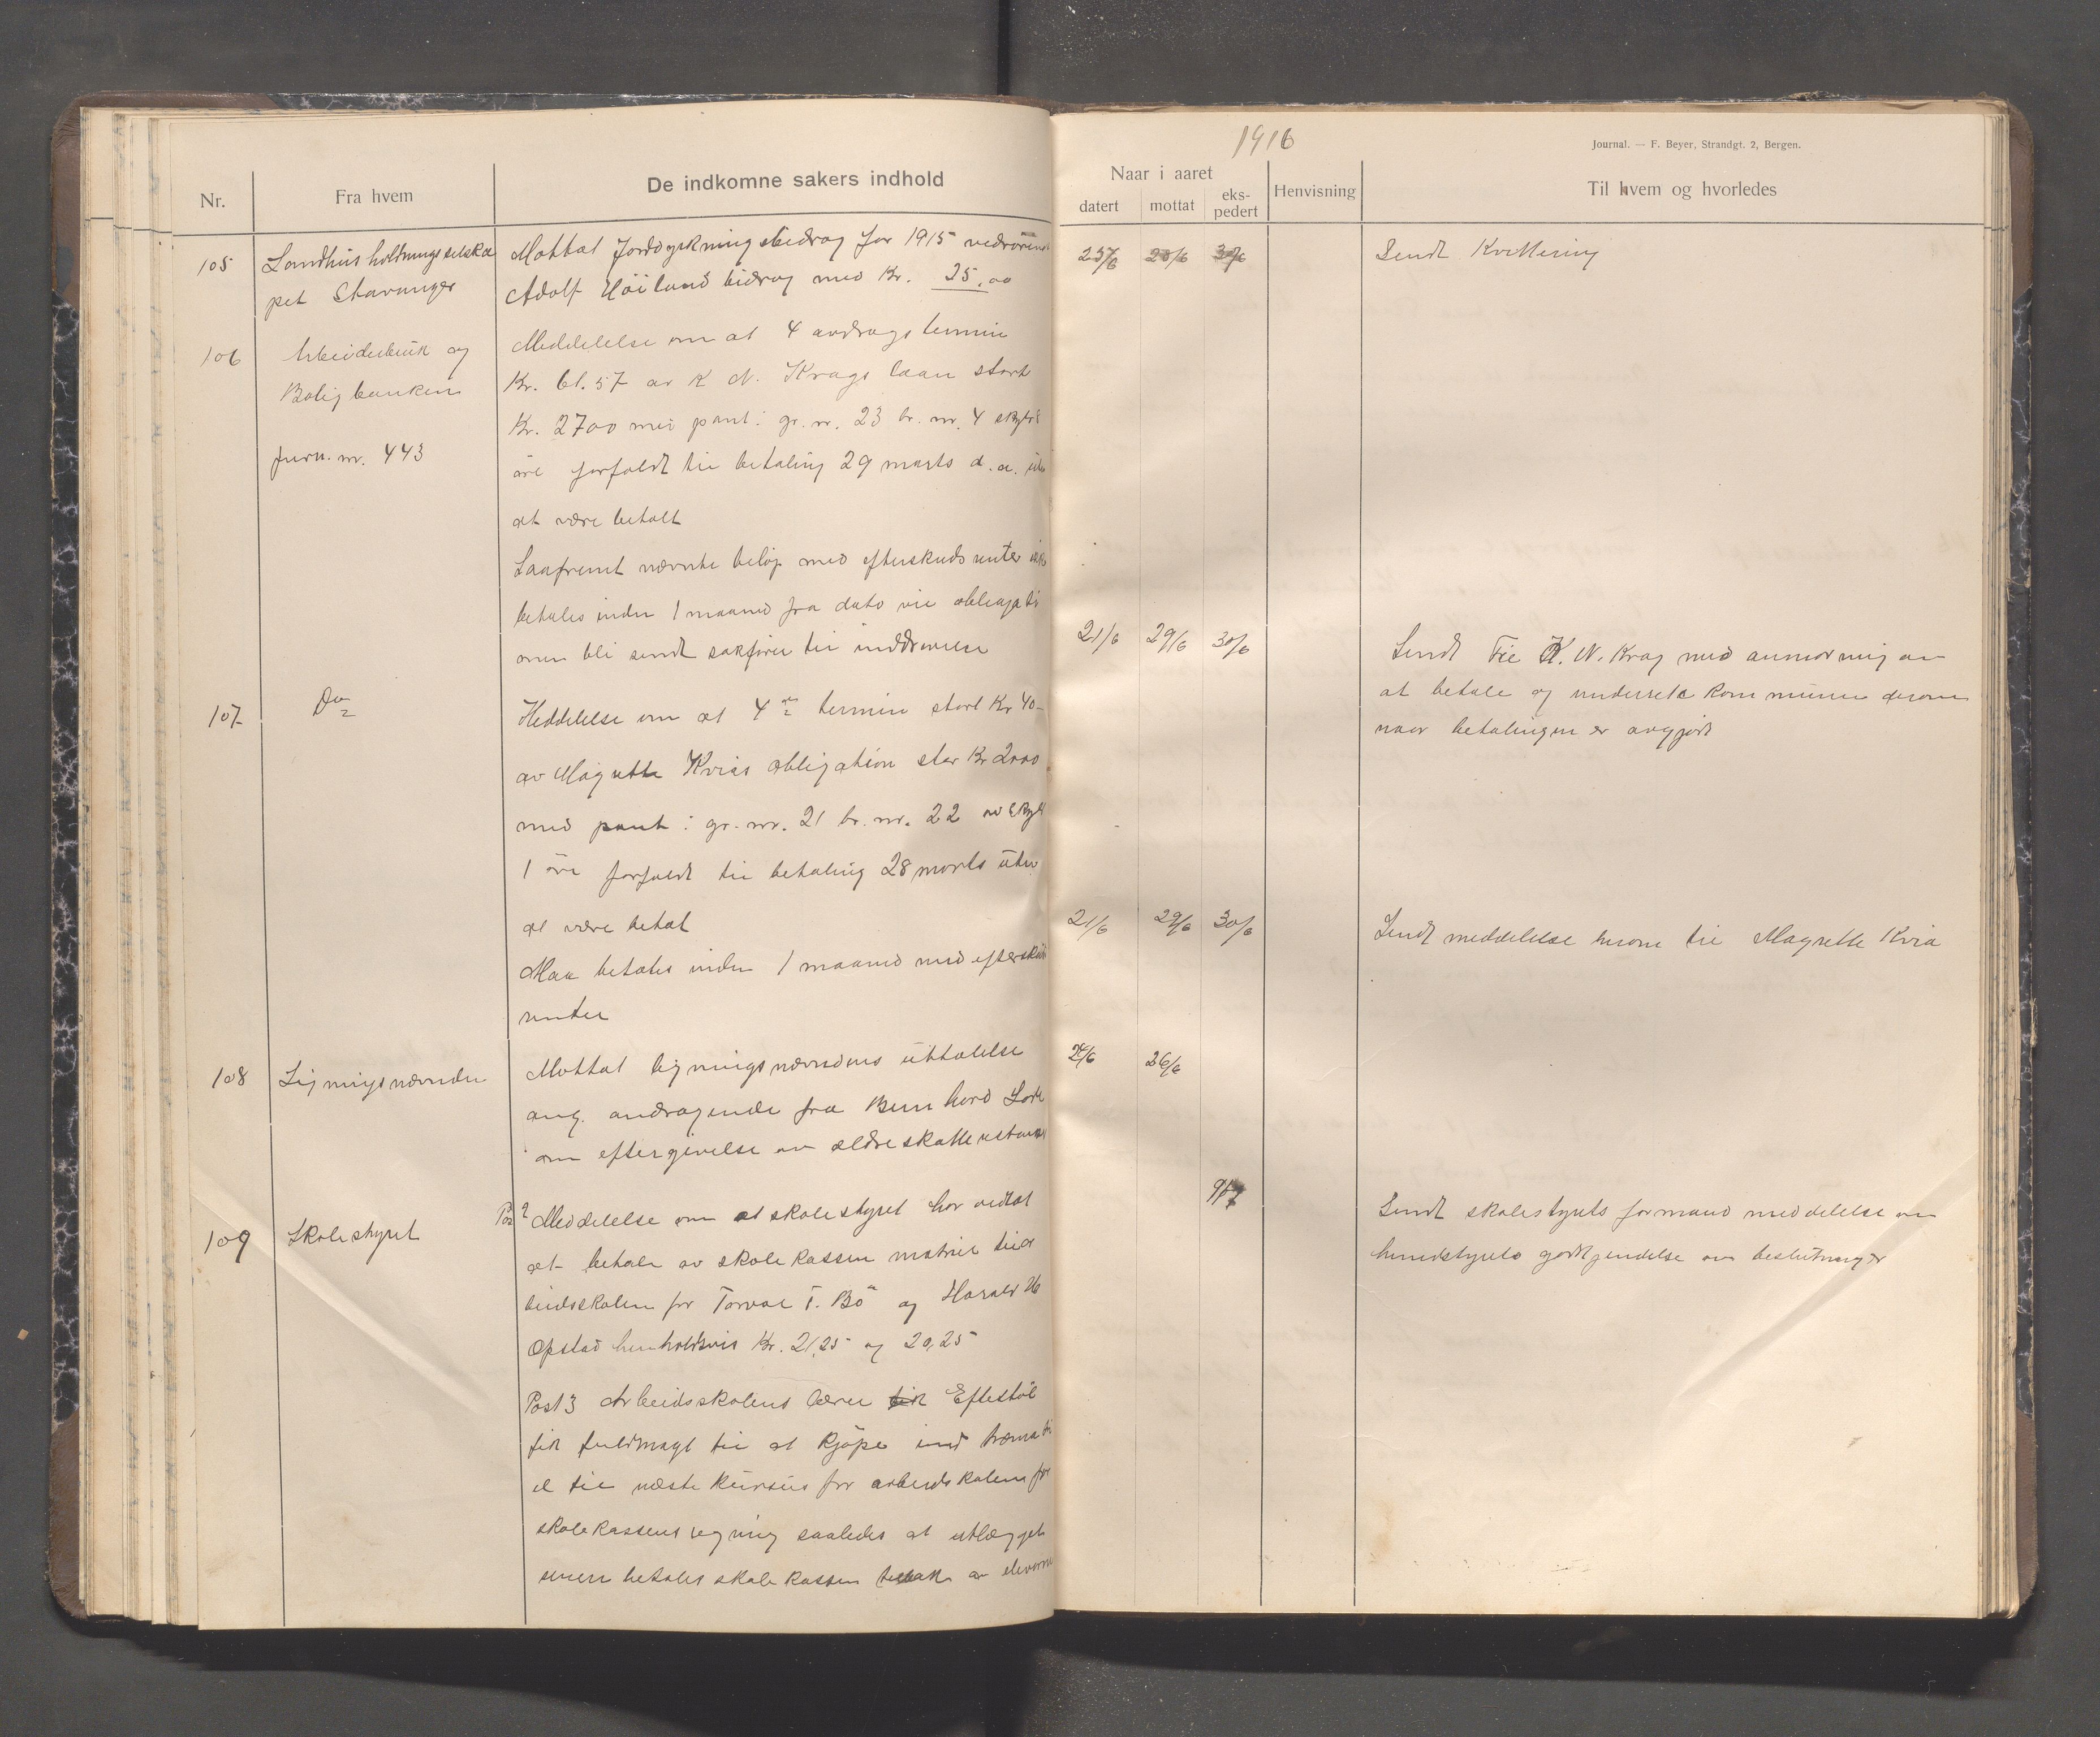 1916
Journal. — F. Beyer, Strandgt. 2, Bergen.
Nr.
Fra hvem
De indkomne sakers indhold
Naar i aaret
datert
mottat
eks-
pedert
Henvisning
Til hvem og hvorledes
105
Landhusholdningsselska
pet Stavanger
Mottat Jorddyrkningsbidrag for 1915 vedrörende
Adolf Höiland bidrag med Kr. 25,00
25/6
Sendt Kvittering
106
Arbeiderbruk og
Boligbanken
Jurn. nr. 443
Meddelelse om at 4 avdrags termin
Kr. 61.57 av K N. Krags laan stort
Kr. 2700 med pant i gr. nr. 23 br. nr. 4 skyld
öre forfaldt til betaling 29 marts d. a. uten
at være betalt
Saafremt nævnte belöp med efterskuds renter ikke
betales inden 1 maaned fra dato vil obligati
onen bli sendt sakförer til inddrivelse
21/6 29/6 30/6
Sendt til K. N. Krag med anmodning om
at betale og underrete Kommunen derom
naar betalingen er avgjort
107
Do
Meddelelse om at 4de termin stort Kr 40-
av Magrette Kvias obligation stor Kr 2000
med pant i gr. nr. 21 br. nr. 22 av Skyld
1 öre forfaldt til betaling 28 marts uten
at være betalt
Maa betales inden 1 maaned med efterskuds
renter
21/6 29/6 30/6
Sendt meddelelse herom til Magrette Kvia
108
Ligningsnævnden
Mottat ligningsnævndens uttalelse
ang. andragende fra Bernhard
om eftergivelse av ældre skatterestanse
26/6
109
Skolestyret
Post 2 Meddelelse om at skolestyret har vedtat
at betale av skolekassen matriel til ar
beidsskolen for Torval T. Bö og Harald
Opstad henholdsvis Kr. 21,25 og 20,25
9/7
Sendt skolestyrets formand meddelelse om
herredstyrets godkjendelse om beslutninger
Post 3 Arbeidsskolens lærer Eftestöl
fik fuldmagt til at kjöpe ind træmatri
el til næste Kursus for arbeidsskolen for
skolekassens regning saaledes at utlægget
senere betales skolekassen tilbake av elevene